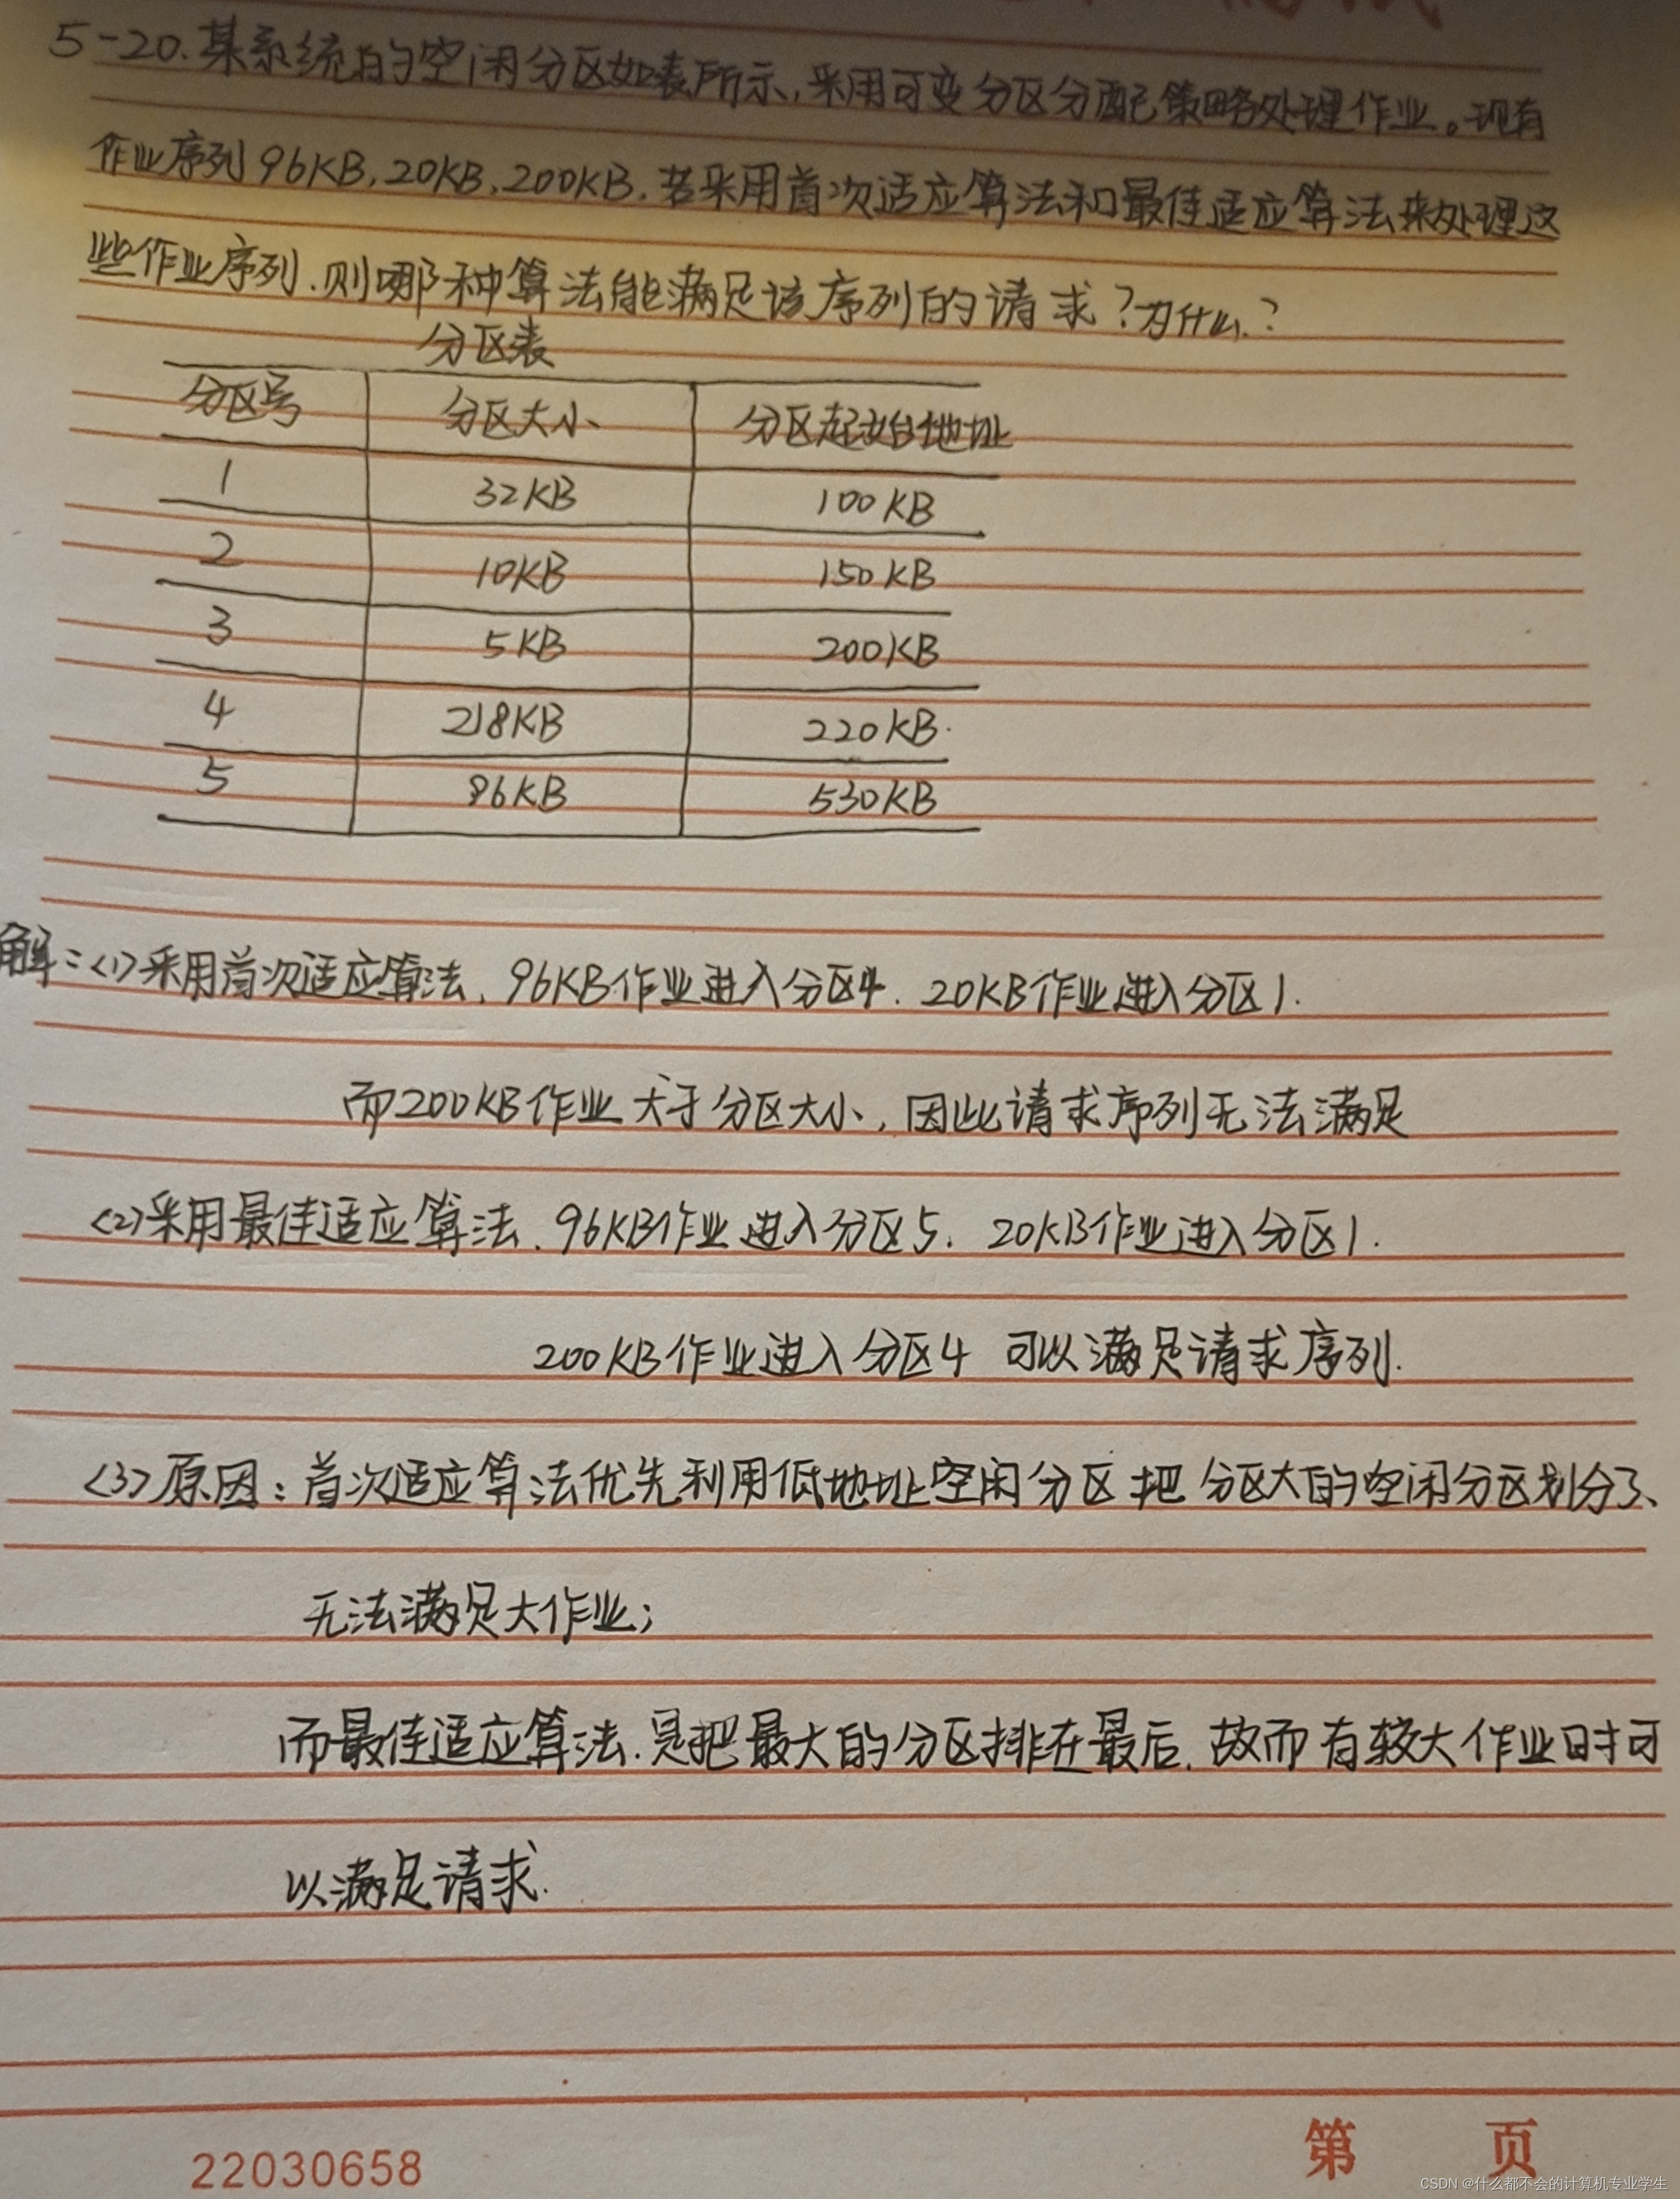 5-20.某系统的空闲分区如表所示,采用可变分区分配策略处理作业。现有
作业序列96KB,20KB,200KB.若采用首次适应算法和最佳适应算法来处理这
些作业序列.则哪种算法能满足该序列的请求?为什么?
分区表
分区号 分区大小 分区起始地址
1 32KB 100KB
2 10KB 150KB
3 5KB 200KB
4 218KB 220KB
5 96KB 530KB
解:<1>采用首次适应算法、96KB作业进入分区4.20KB作业进入分区1.
而200KB作业大于分区大小,因此请求序列无法满足
<2>采用最佳适应算法、96KB作业进入分区5.20KB作业进入分区1.
200KB作业进入分区4 可以满足请求序列.
<3>原因:首次适应算法优先利用低地址空闲分区 把分区大的空闲分区划分了、
无法满足大作业;
而最佳适应算法.是把最大的分区排在最后.故而有较大作业时可
以满足请求.
22030658
第 页
CSDN @什么都不会的计算机专业学生